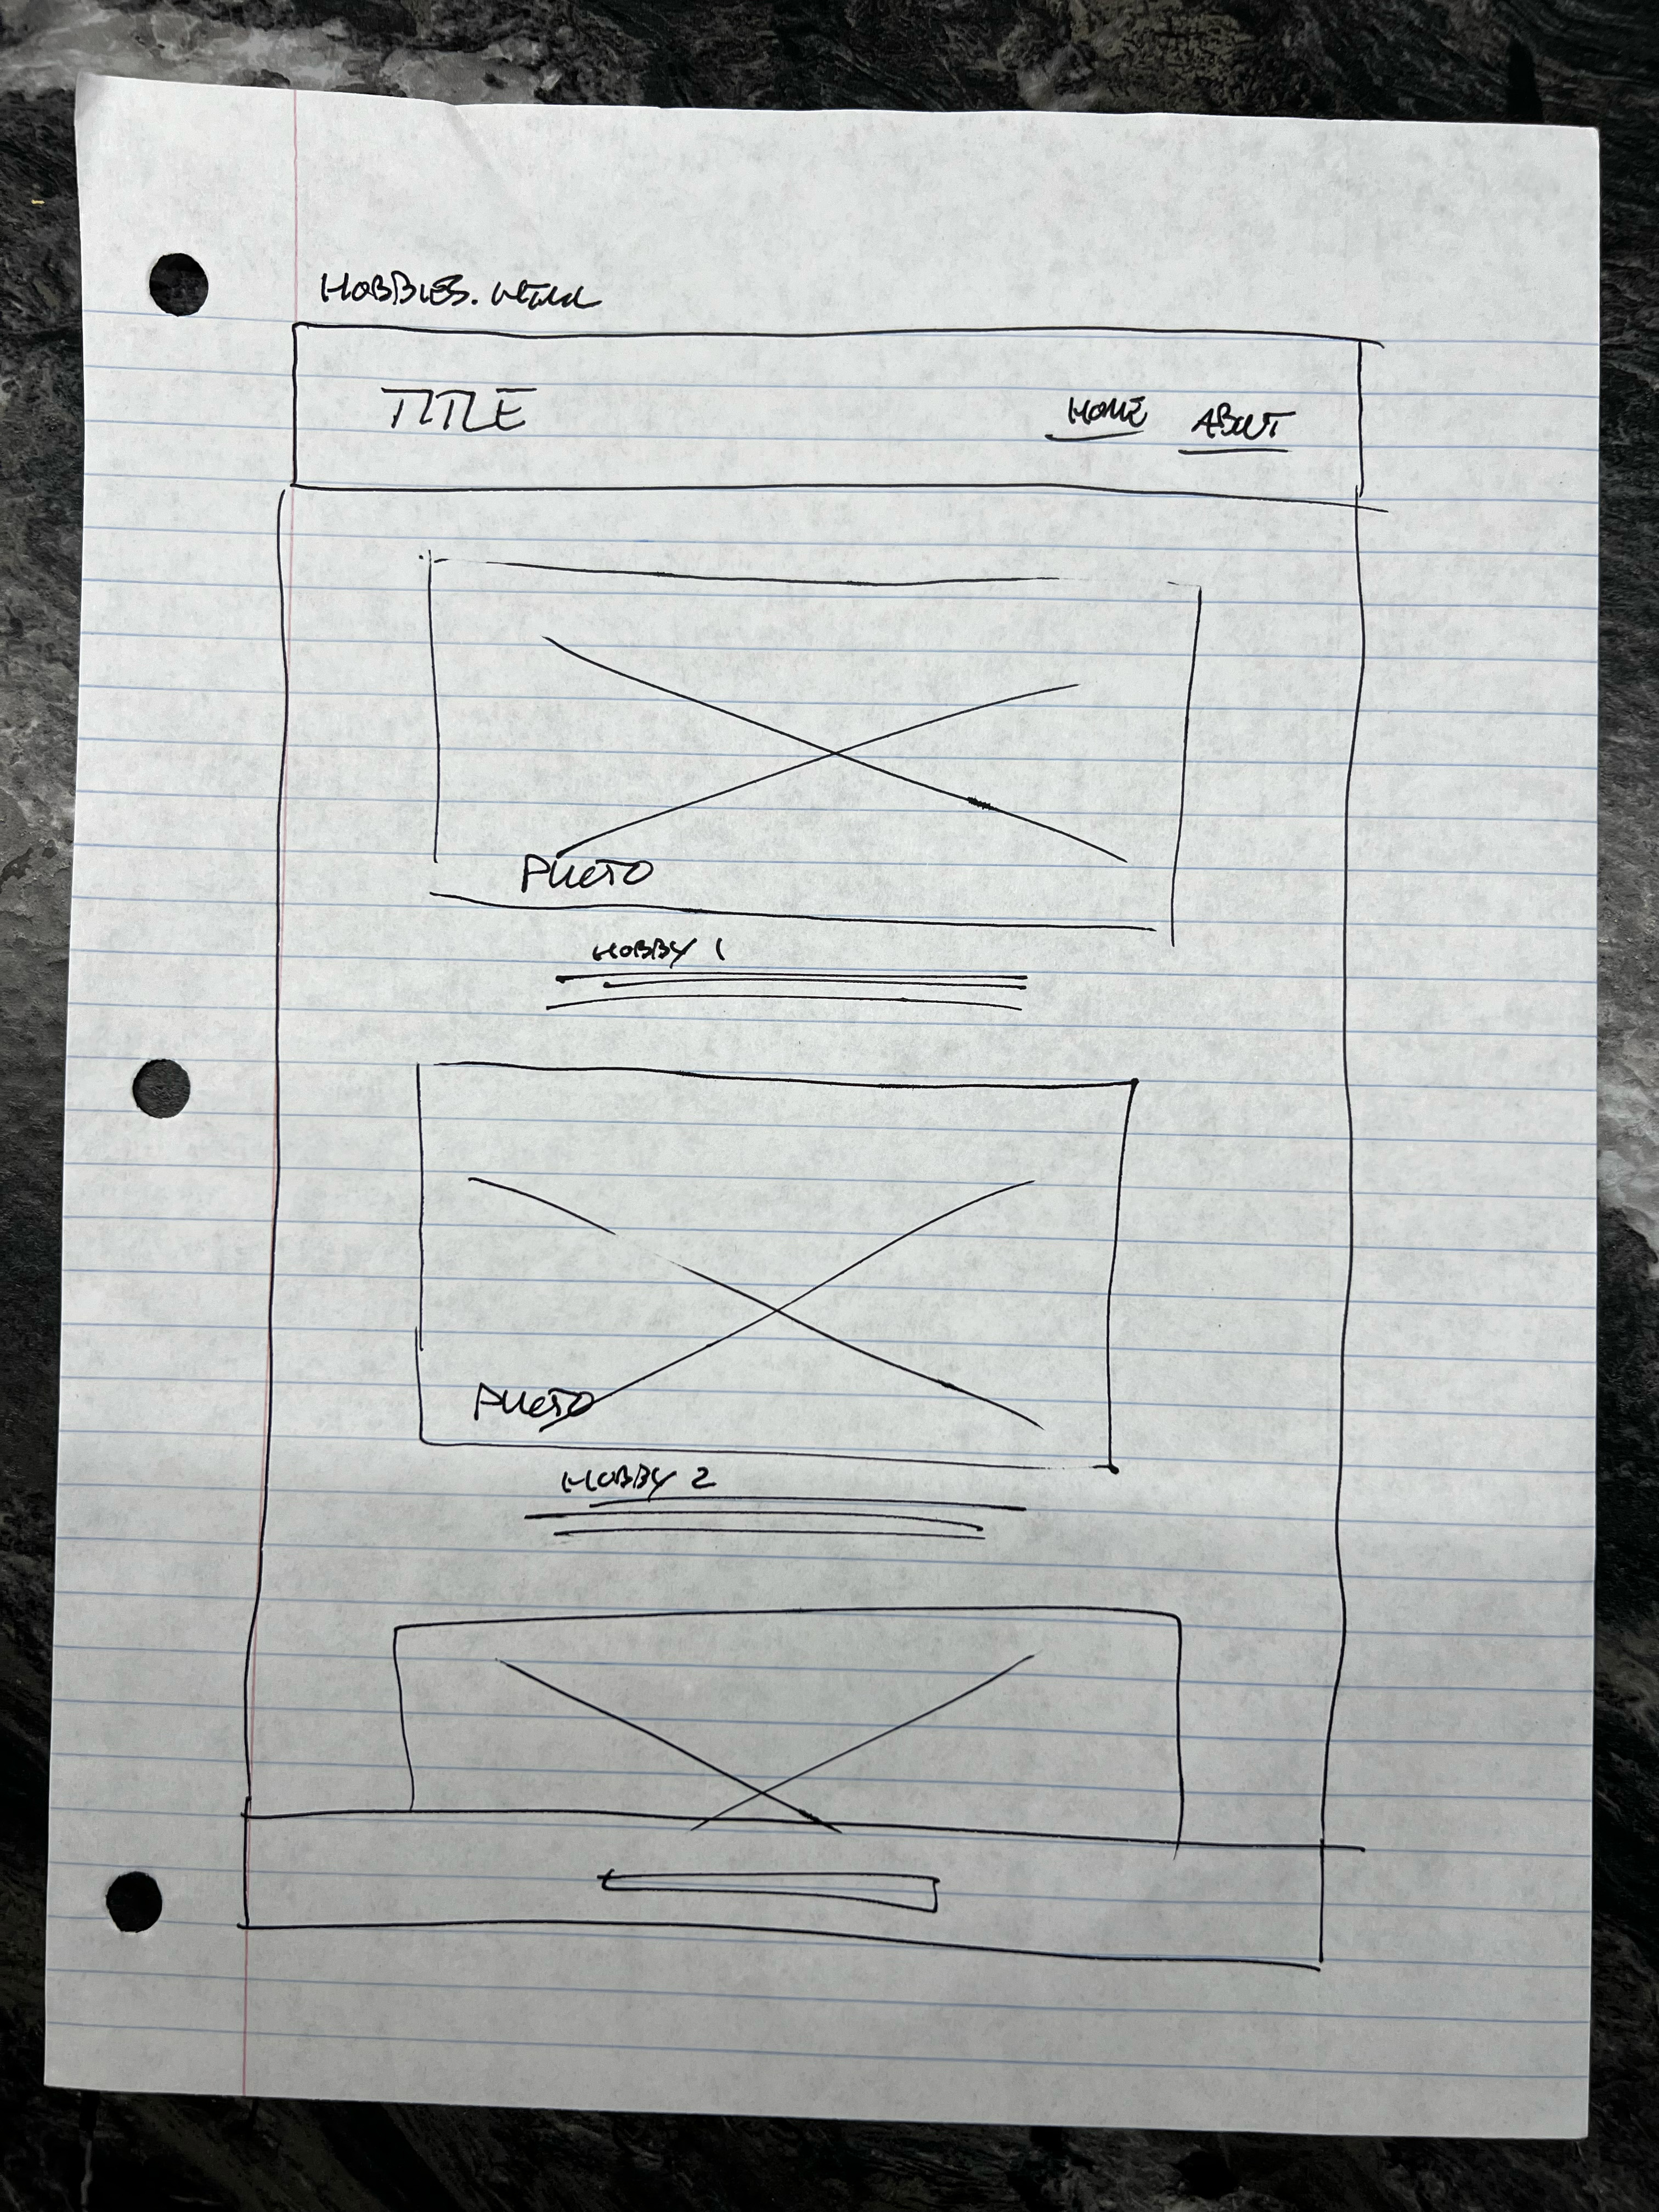 HOBBIES.HTML
TITLE HOME ABOUT
PHOTO
HOBBY 1
PHOTO
HOBBY 2